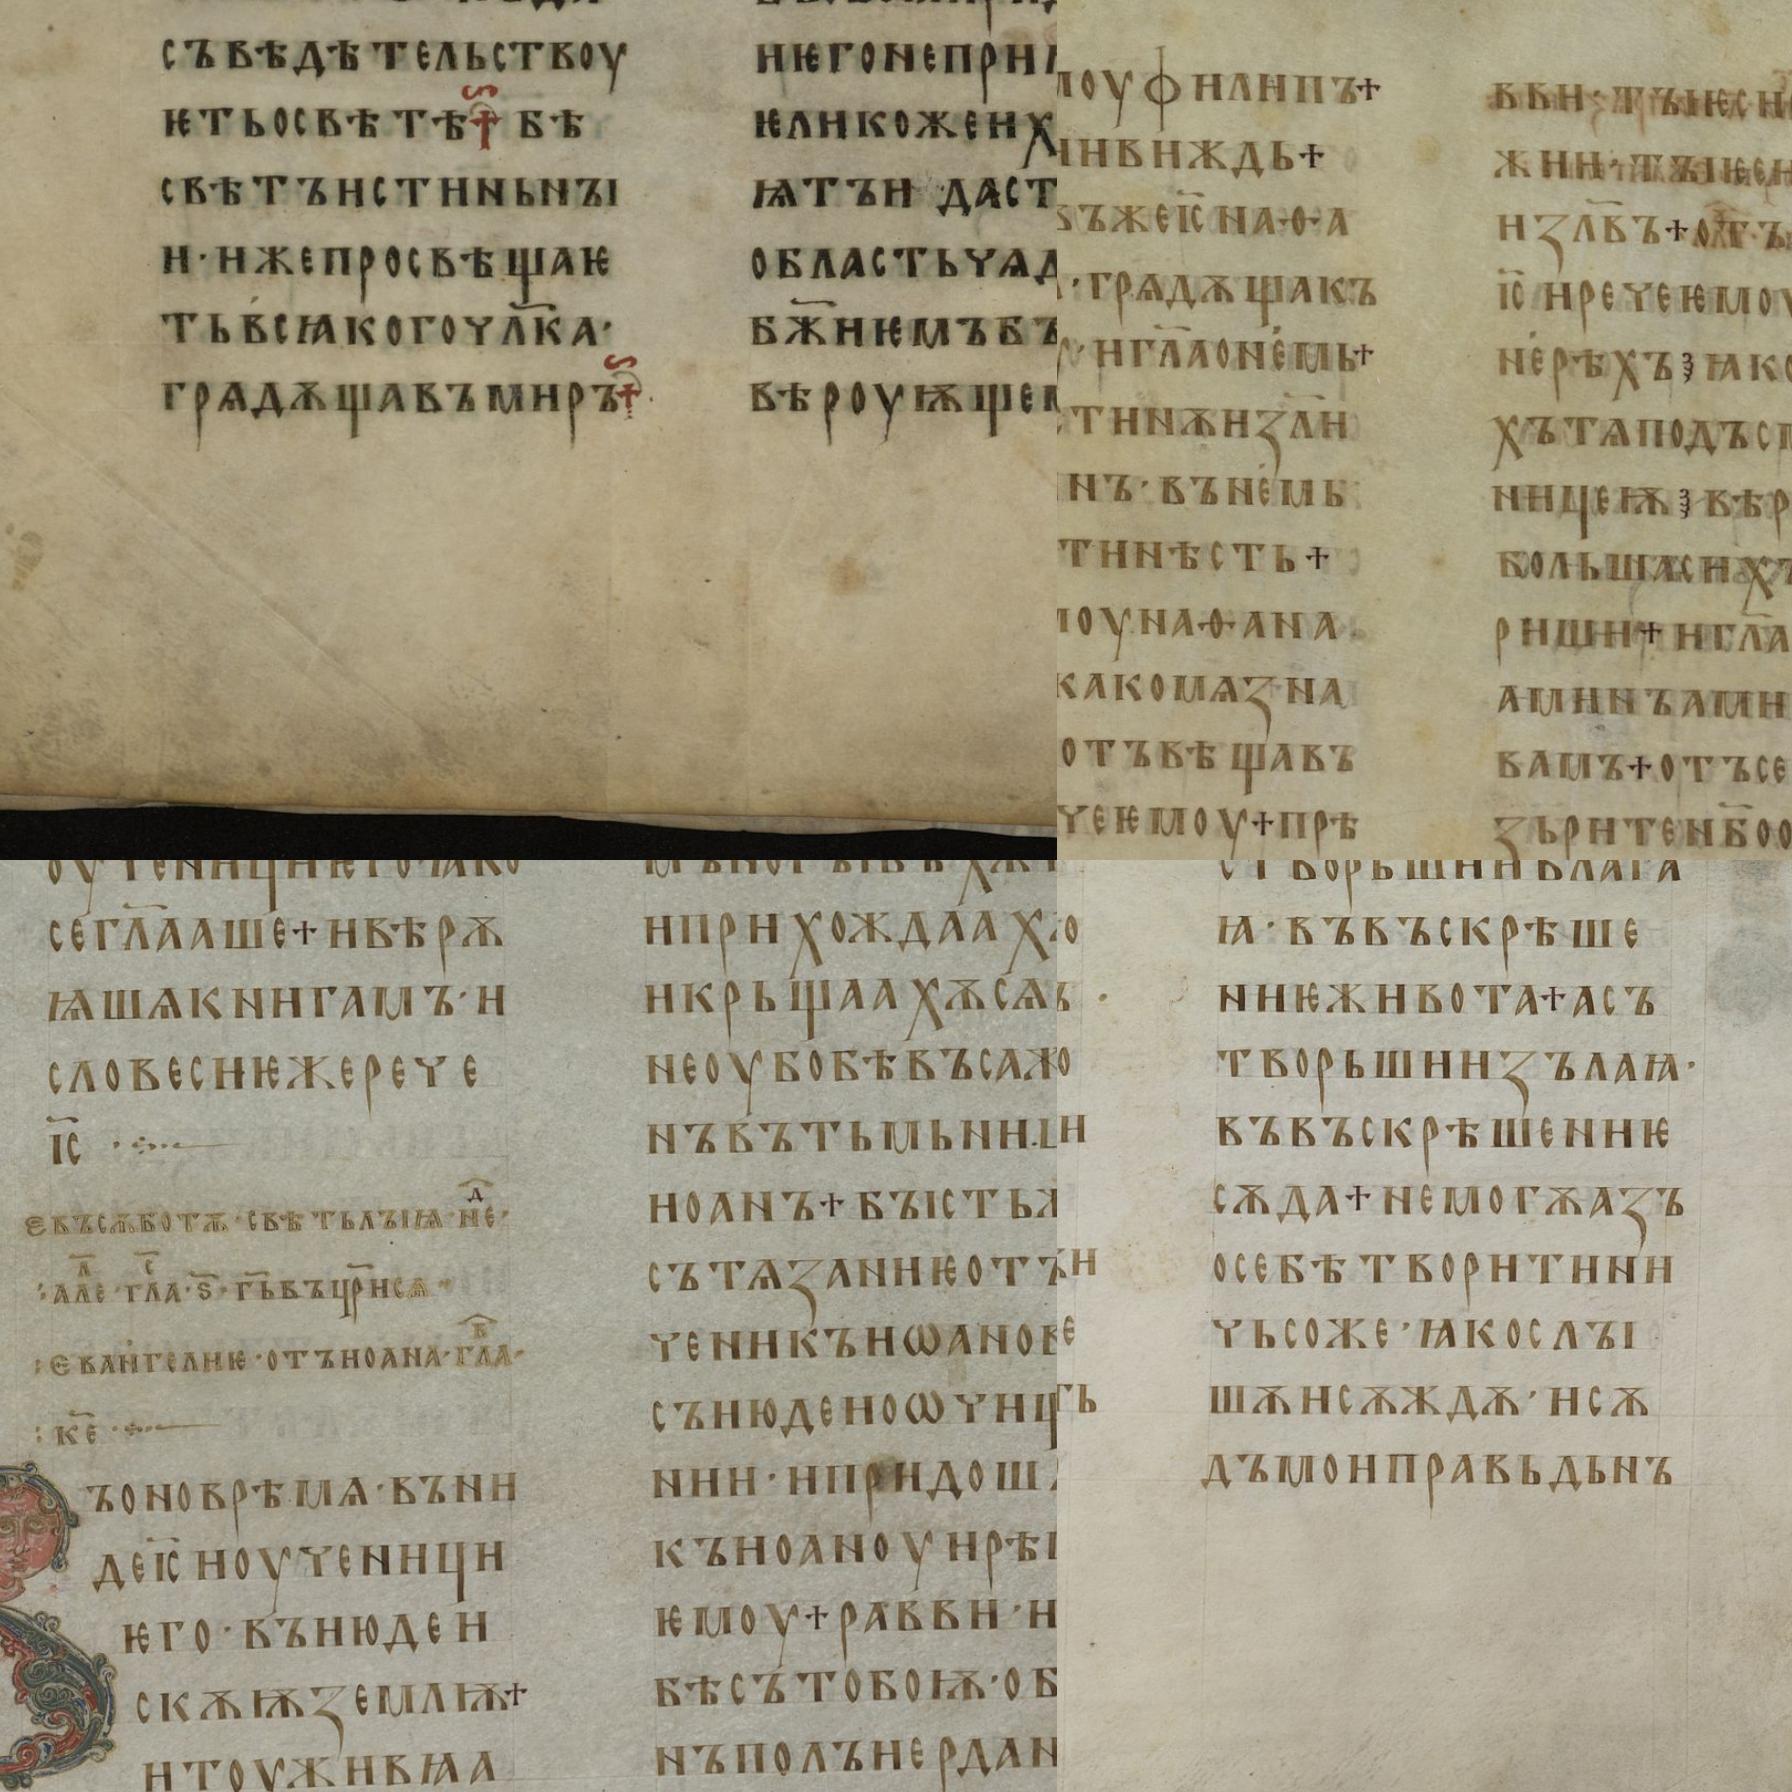 съвѣдѣтельствоу
ѥтьосвѣтѣ☦бѣ
свѣтъистиньнꙑ
и·ижепросвѣщаѥ
тьвсꙗкогочл҃ка·
грѧдѫщавъмиръ☦
нѥгонепри
ѥликожених
ꙗтъи даст
областьчѧд
бж҃иѥмъбъ
вѣроуѭщем
моуфилипъ+
инвиждь+
въжеіс҃на-ѳ-а
·грѧдѫщакъ
·игл҃аонемь+
тинѫизл҃и
инъ·вънемь
тинѣсть+
моуна-ѳ-ана
какомѧзна
отъвѣщавъ
чеѥмоу+прѣ
вви·тꙑѥсн
жии·тꙑѥси
изл҃въ+отъ
іс҃ иречеѥмоу
нерѣхъꙗко
хътѧподъс
ницеѭвѣр
большасихъ
риши+игл҃а
аминъамин
вамъ+отъсе
зьритенб҃оо
оученициѥгоꙗко
сегл҃ааше+ивѣрѫ
ꙗшѧкнигамъ·и
словесиѥжерече
іс҃
евъсѫботѫ·свѣтьлꙑѩ·не·д
·але·гла·ѕ҃·гь҃въцр҃исѧ
:еваньгелиѥ·отъиоана·гла·в
:ке҃
ъоноврѣмѧ·въни
деіс҃ иоученици
ѥго·въиюдеи
скѫѭземлѭ+
итоуживꙗа
мъногꙑвъ
иприхождаах
икрьщаахѫсѧ
неоубобѣвъсаж
нъвътьмьни
иоанъ+бꙑстьж
сътѧзаниѥотъ
ченикъиѡанов
съиюдеиоѡчищ
нии·ипридош
къиоаноуирѣ
ѥмоу+равви·и
бѣстобоѭ·об
нъполъиердан
створьшиивлага
ꙗ·въвъскрѣше
ниѥживота+асъ
творьшиизълаꙗ·
въвъскрѣшениѥ
сѫда+немогѫазъ
осебѣтворитини
чьсоже·ꙗкослꙑ
шѫисѫждѫ·исѫ
дъмоиправьдьнъ